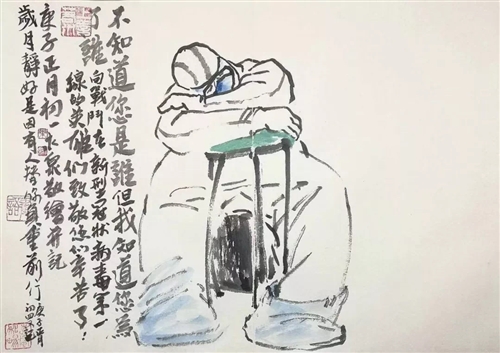 不知道您是誰但我知道您為
了誰向戰鬥在新型冠狀病毒第一
線的英雄們致敬您们辛苦了!
庚子正月初一大泉敬繪并記
歲月靜好是因有人替你負重前行